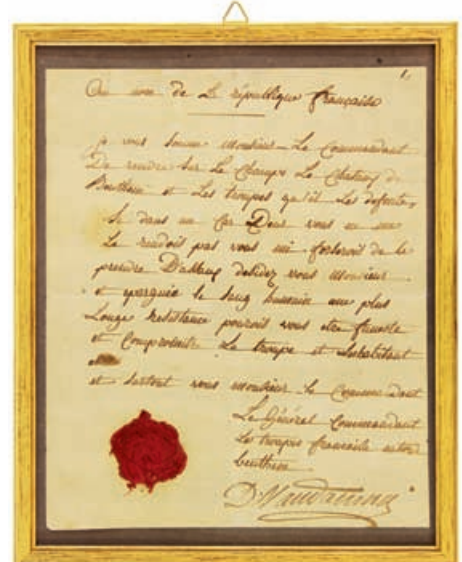 Au nom de La république française
je vous somme monsieur Le Commandant
De rendre sur Le Champs Le Chateau de
Bentheim et Les troupes qu'il Les
Si dans un Car Deur vous ne me
Le rendoit pas vous me forseroit de le
prendre D'assaug desidez vous Monsieur
et epargnée le sang humain une plus
Longe Resistance pouroit vous etre funeste
et Compromitre La troupe et
et surtout vous monsieur le Commendant
Le Général Commandant
Les troupes francaise
bentheim
D. Vandamme